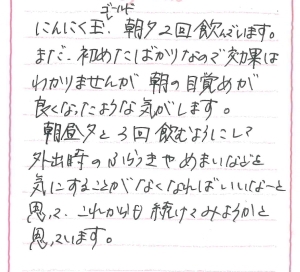 ゴールド
にんにく玉、朝夕2回飲んでします。
まだ、初めたばかりなので効果は
わかりませんが 朝の目覚めが
良くなったような気がします。
朝昼夕と3回飲むようにして
外出時のふらつきやめまいなどを
気にすることがなくなればいいな〜と
思って、これからも続けてみようかと
思っています。